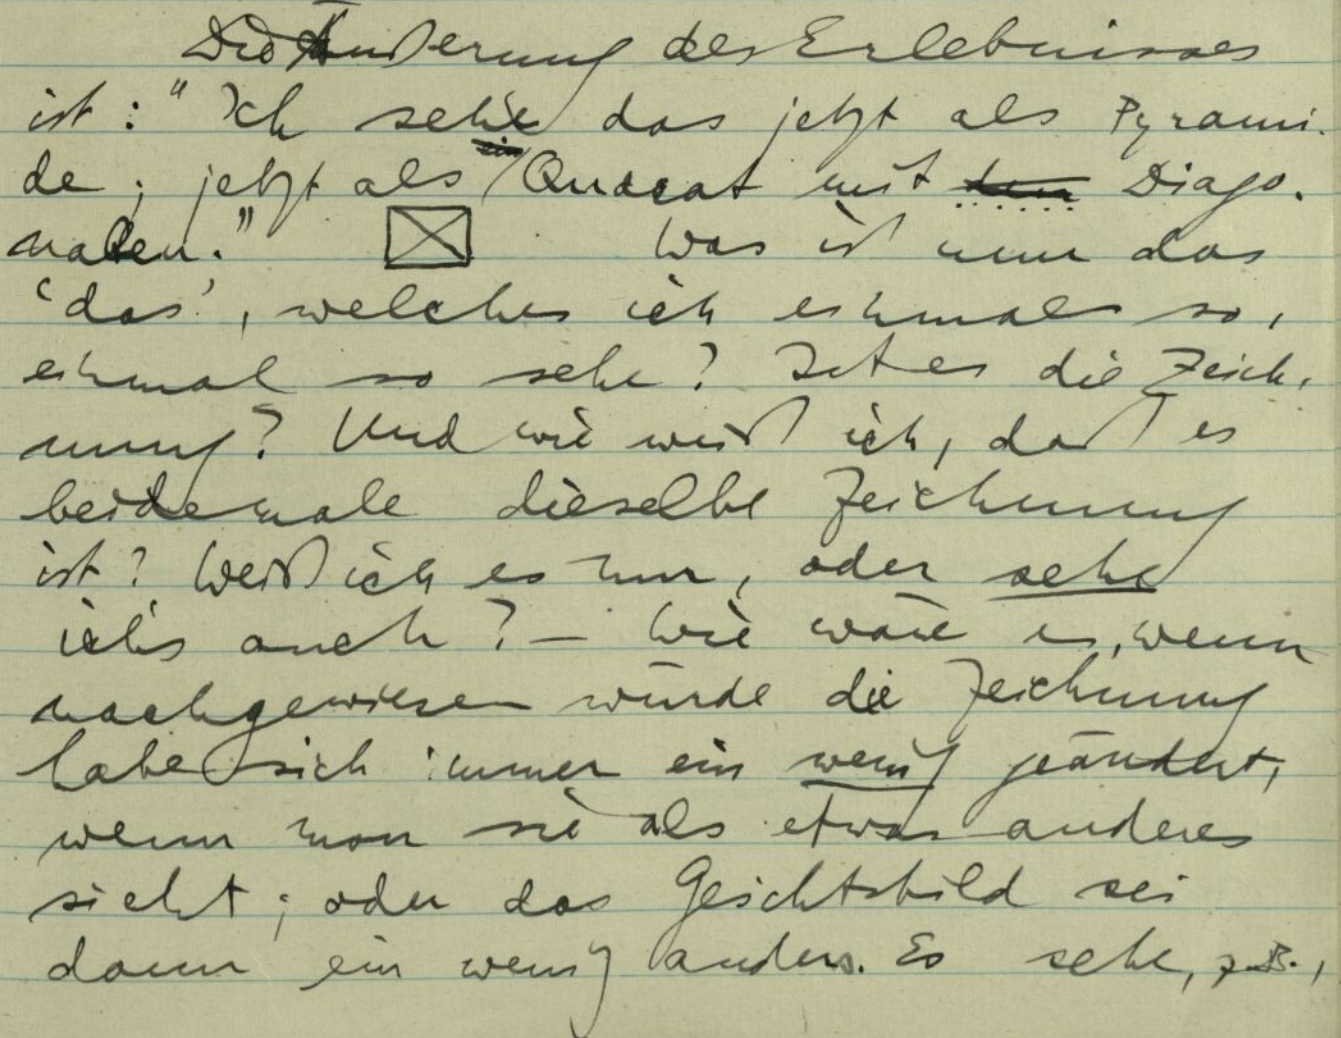 Die Äußerung des Erlebnisses
ist: "Ich sehe das jetzt als Pyrami-
de; jetzt als ein Quadrat mit den Diago-
nalen." Was ist nun das
'das', welches ich einmal so,
einmal so sehe? Ist es die Zeich-
nung? Und wie weiß ich, daß es
beidemale dieselbe Zeichnung
ist? Weiß ich es nur, oder sehe
ich's auch? – Wie wäre es, wenn
nachgewiesen würde die Zeichnung
habe sich immer ein wenig geändert,
wenn man sie als etwas anderes
sieht; oder das Gesichtsbild sei
dann ein wenig anders. Es sehe, z.B.,